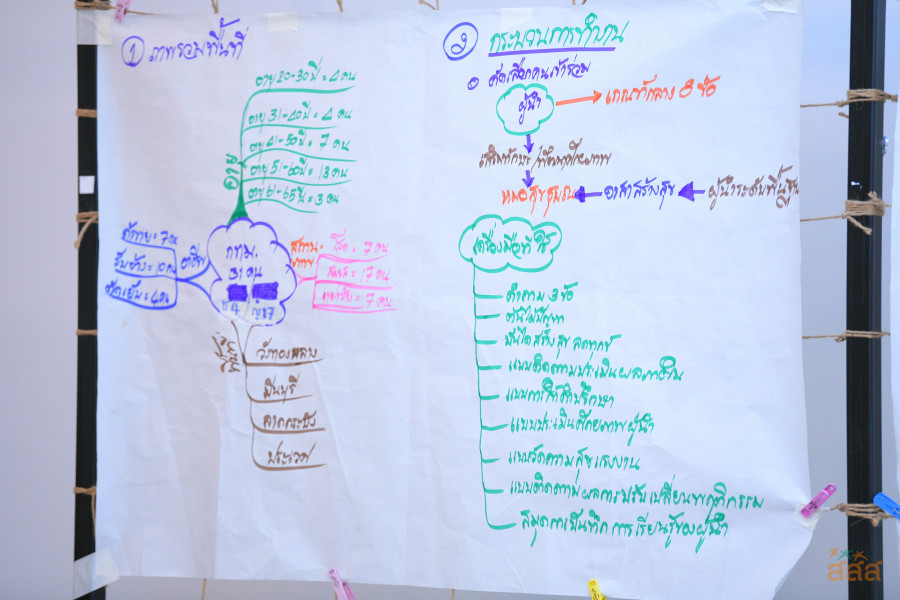 ① ภาพรวมพื้นที่
อายุ
อายุ 20-30 ปี = 4 คน
อายุ 31-40 ปี = 4 คน
อายุ 41-50 ปี = 7 คน
อายุ 51-60 ปี = 13 คน
อายุ 61-65 ปี = 3 คน
กทม.
31 คน
ช 4 ญ 27
อาชีพ
ค้าขาย = 7 คน
รับจ้าง = 10 คน
ตัดเย็บ = 4 คน
สถานะภาพ
โสด = 7 คน
สมรส = 17 คน
หย่าร้าง = 7 คน
วังทองหลาง
มีนบุรี
ลาดกระบัง
ประเวศ
② กระบวนการทำงาน
คัดเลือกคนเข้าร่วม
ผู้นำ
เกณฑ์กลาง 8 ข้อ
เสริมทักษะ/พัฒนาศักยภาพ
หมอสุขชุมชน
อาสาสร้างสุข
ผู้นำระดับพื้นฐาน
เครื่องมือที่ใช้
คำถาม 3 ข้อ
ต้นไม้ปัญหา
บันไดสร้างสุข ลดทุกข์
แบบติดตามประเมินผลภาวะ
แบบการให้คำปรึกษา
แบบประเมินศักยภาพผู้นำ
แบบวัดความสุขแรงงาน
แบบติดตามผลการปรับเปลี่ยนพฤติกรรม
สมุดบันทึกการเรียนรู้ของผู้นำ
สสส